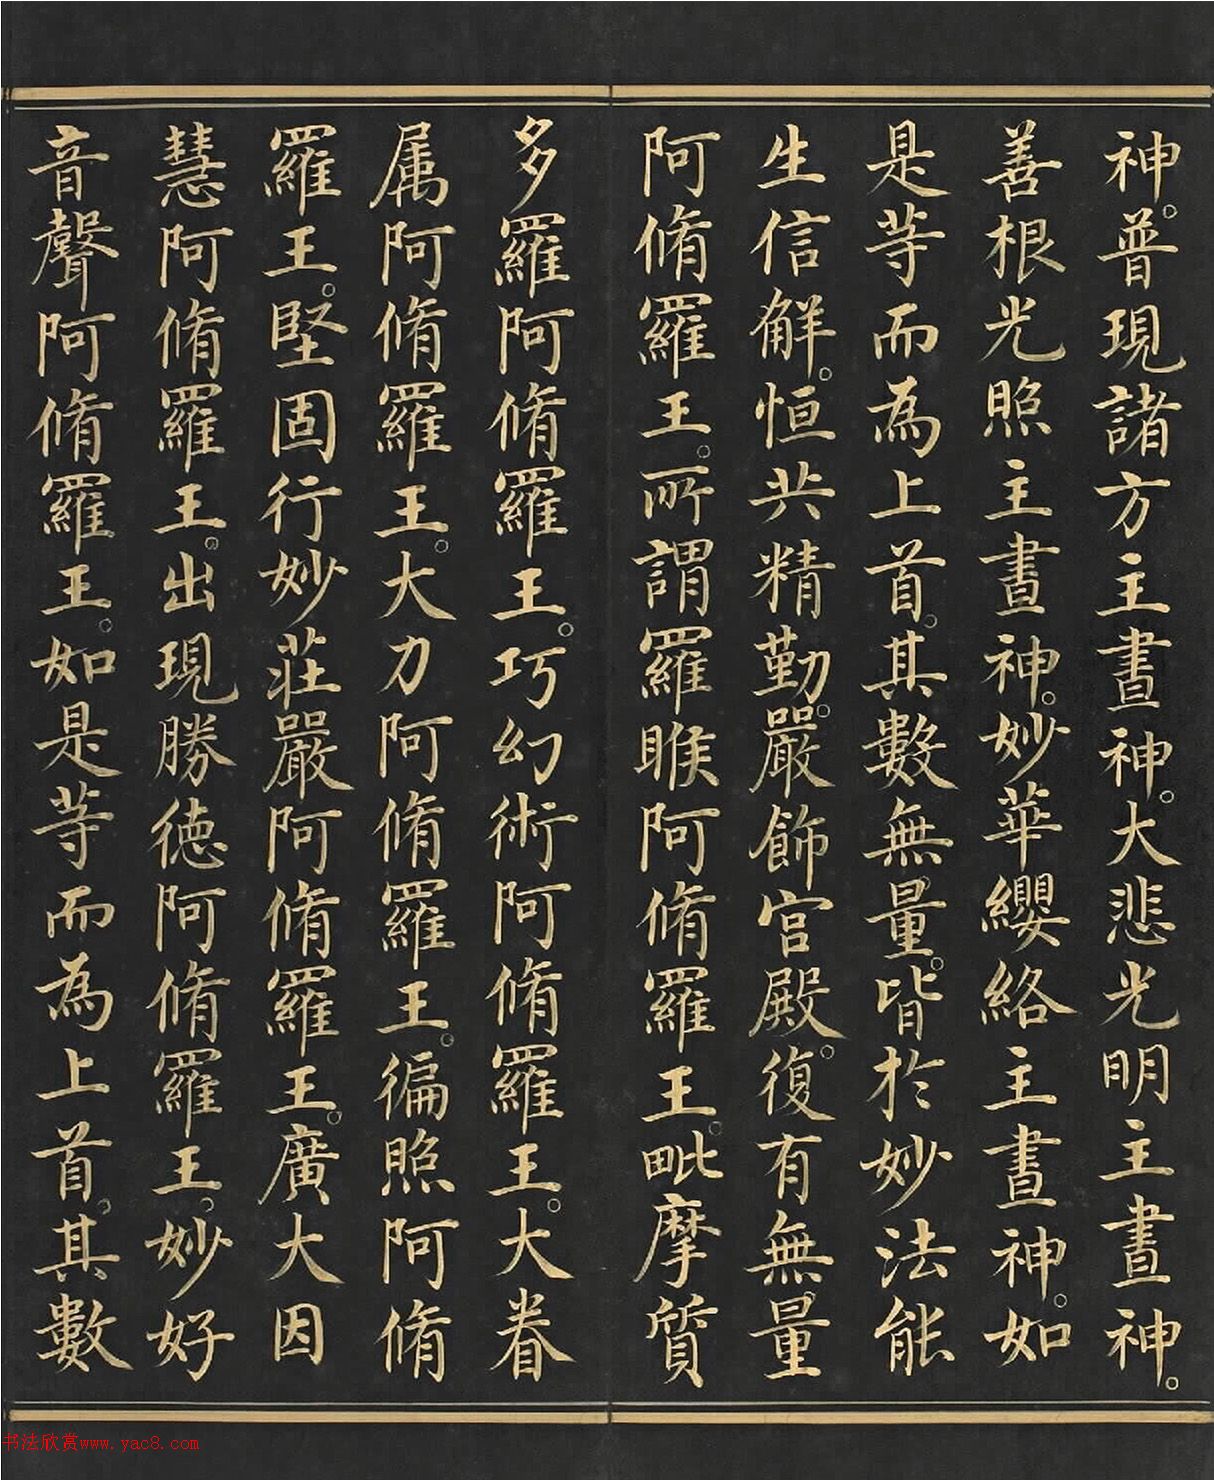 神。普現諸方主晝神。大悲光明主晝神。
善根光照主晝神。妙華纓絡主晝神。如
是等而為上首。其數無量。皆於妙法能
生信解。恒共精勤。嚴飾宮殿。復有無量
阿脩羅王。所謂羅睺阿脩羅王。毗摩質
多羅阿脩羅王。巧幻術阿脩羅王。大眷
属阿脩羅王。大力阿脩羅王。徧照阿脩
羅王。堅固行妙莊嚴阿脩羅王。廣大因
慧阿脩羅王。出現勝德阿脩羅王。妙好
音聲阿脩羅王。如是等而為上首。其數
书法欣赏www.yac8.com